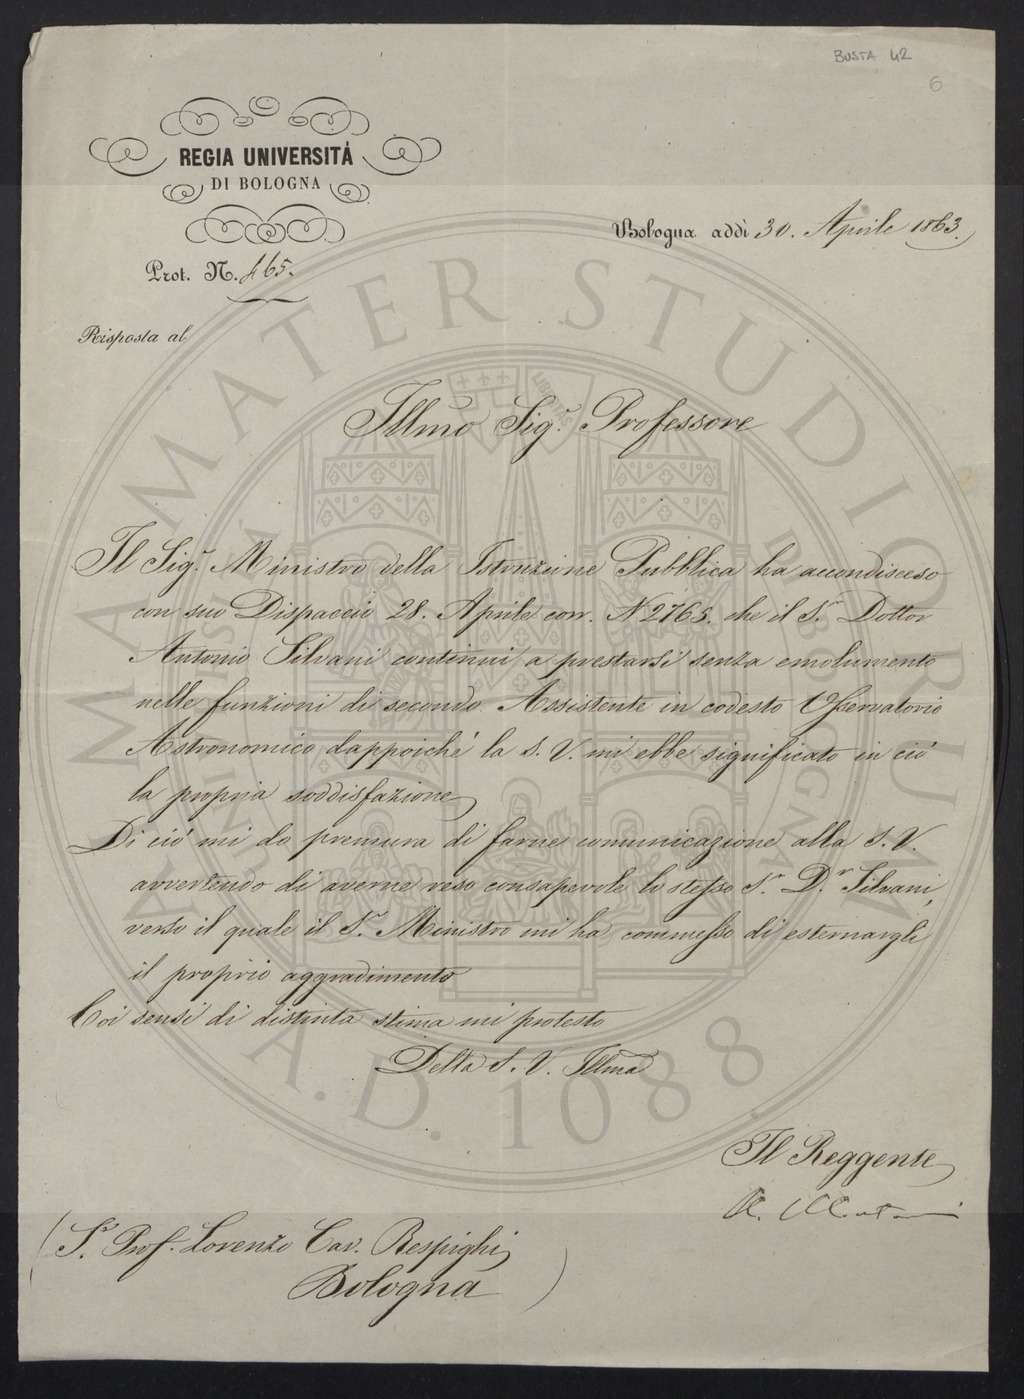 BUSTA 42
6
REGIA UNIVERSITÁ
DI BOLOGNA
Prot. N. 465.
Bologna addì 30. Aprile 1863.
Risposta al
Illmo Sig.r Professore
Il Sig.r Ministro della Istruzione Pubblica ha accondisceso
con suo Dispaccio 28. Aprile corr. N 2765. che il S.r Dottor
Antonio Silvani continui a prestarsi senza emolumento
nelle funzioni di secondo Assistente in codesto Osservatorio
Astronomico dappoiché la S. V. mi ebbe significato in ciò
la propria soddisfazione
Di ciò mi do premura di farne comunicazione alla S. V.
avvertendo di averne reso consapevole lo stesso S.r D.r Silvani,
verso il quale il S.r Ministro mi ha commesso di esternargli
il proprio aggradimento
Coi sensi di distinta stima mi protesto
Della S. V. Illma
Il Reggente
S.r Prof. Lorenzo Cav. Respighi
Bologna
ALMA MATER STUDIORUM
UNIVERSITÀ DI BOLOGNA
LIBERTAS
A.D. 1088